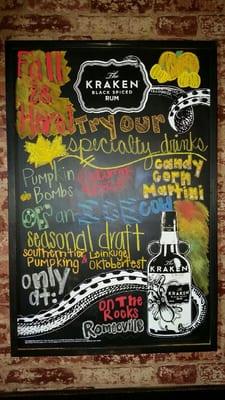 Fall
is
Here!
The
KRAKEN
BLACK SPICED
RUM
Try our
specialty drinks
Pumpkin
Bombs
candy
corn
Martini
or an
cold
seasonal draft
Southern tier
Pumpking
& Leinkugel
Oktoberfest
only
at:
The
KRAKEN
on The
Rocks
Romeoville